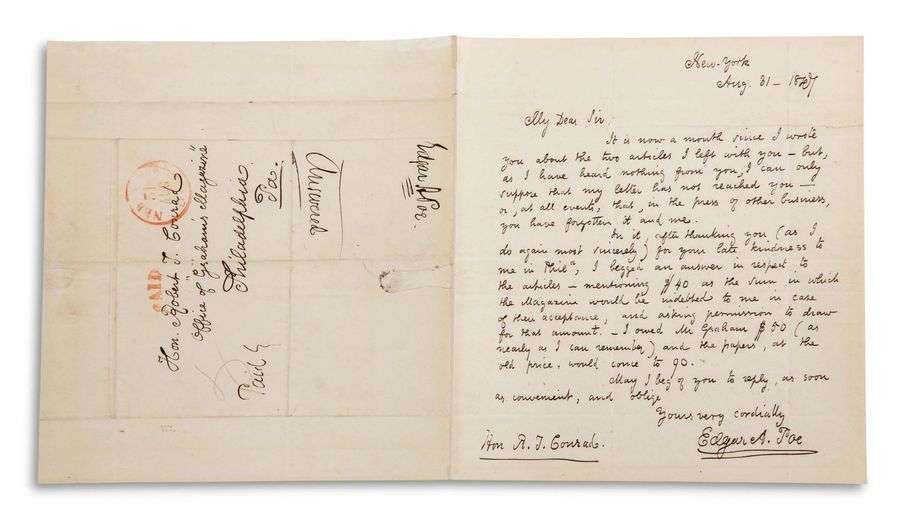 Edgar A Poe.
Answered
Hon. Robert T. Conrad
Office of "Graham's Magazine"
Philadelphia.
Pa.
Paid
PAID
NEW
New-York
Aug. 31 - 1847
My Dear Sir,
It is now a month since I wrote
you about the two articles I left with you — but,
as I have heard nothing from you, I can only
suppose that my letter has not reached you —
or, at all events, that, in the press of other business,
you have forgotten it and me.
In it, after thanking you (as I
do again most sincerely) for your late kindness to
me in Phila, I begged an answer in respect to
the articles — mentioning $40 as the sum in which
the Magazine would be indebted to me in case
of their acceptance, and asking permission to draw
for that amount. — I owed Mr Graham $50 (as
nearly as I can remember) and the papers, at the
old price, would come to 90.
May I beg of you to reply, as soon
as convenient, and oblige
Yours very cordially
Edgar A. Poe
Hon R. T. Conrad.